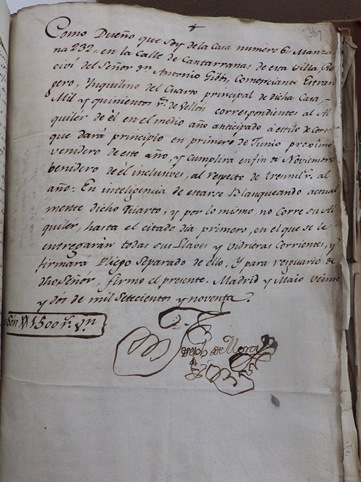 Como Dueño que soy de la Casa numero 6 Manza
na 232, en la Calle de Cantarrana, de esta Villa, Re
civi del Señor Dn Antonio Comerciante Estran
gero, Ynquilino del Cuarto principal de dicha Casa,
Mil y quinientos rs. de Vellon correspondientes al Al
quiler de èl en el medio año anticipado à estilo de Corte
que darà principio en primero de Junio proximo
venidero de este año, y Cumplira en fin de Noviembre
benidero de el inclusives, al respeto de tres mil rs. al
año: En inteligencia de estarse blanqueando actual
mente dicho Quarto, y por lo mismo no corre su Al
quiler, hasta el citado dia primero, en el que se le
entregaràn todas sus Llaves y Vidrieras Corrientes, y
firmarà Pliego Separado de ello, Y para resguardo de
dho Señor, firmo el presente. Madrid y Maio veinte
y dos de mil Setecientos y noventa
Son 1500 rs. vn